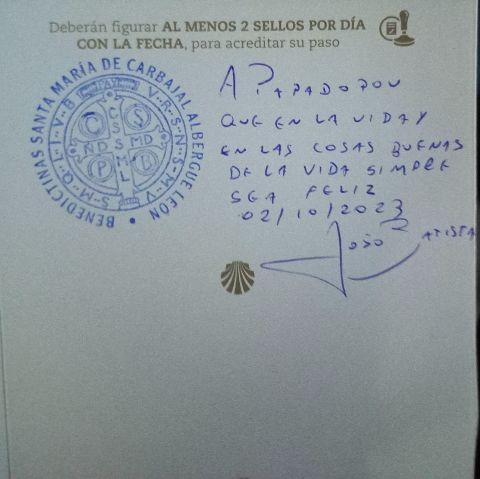 Deberán figurar AL MENOS 2 SELLOS POR DÍA
CON LA FECHA, para acreditar su paso
BENEDICTINAS SANTA MARÍA DE CARBAJAL ALBERGUE LEÓN
PAX
V·R·S·N·S·M·V
S·M·Q·L·I·V·B
C S P B
C S S M L
N D S M D
A PAPADOPOU
QUE EN LA VIDA Y
EN LAS COSAS BUENAS
DE LA VIDA SIMPRE
SEA FELIZ
02/10/2023
João BATISTA